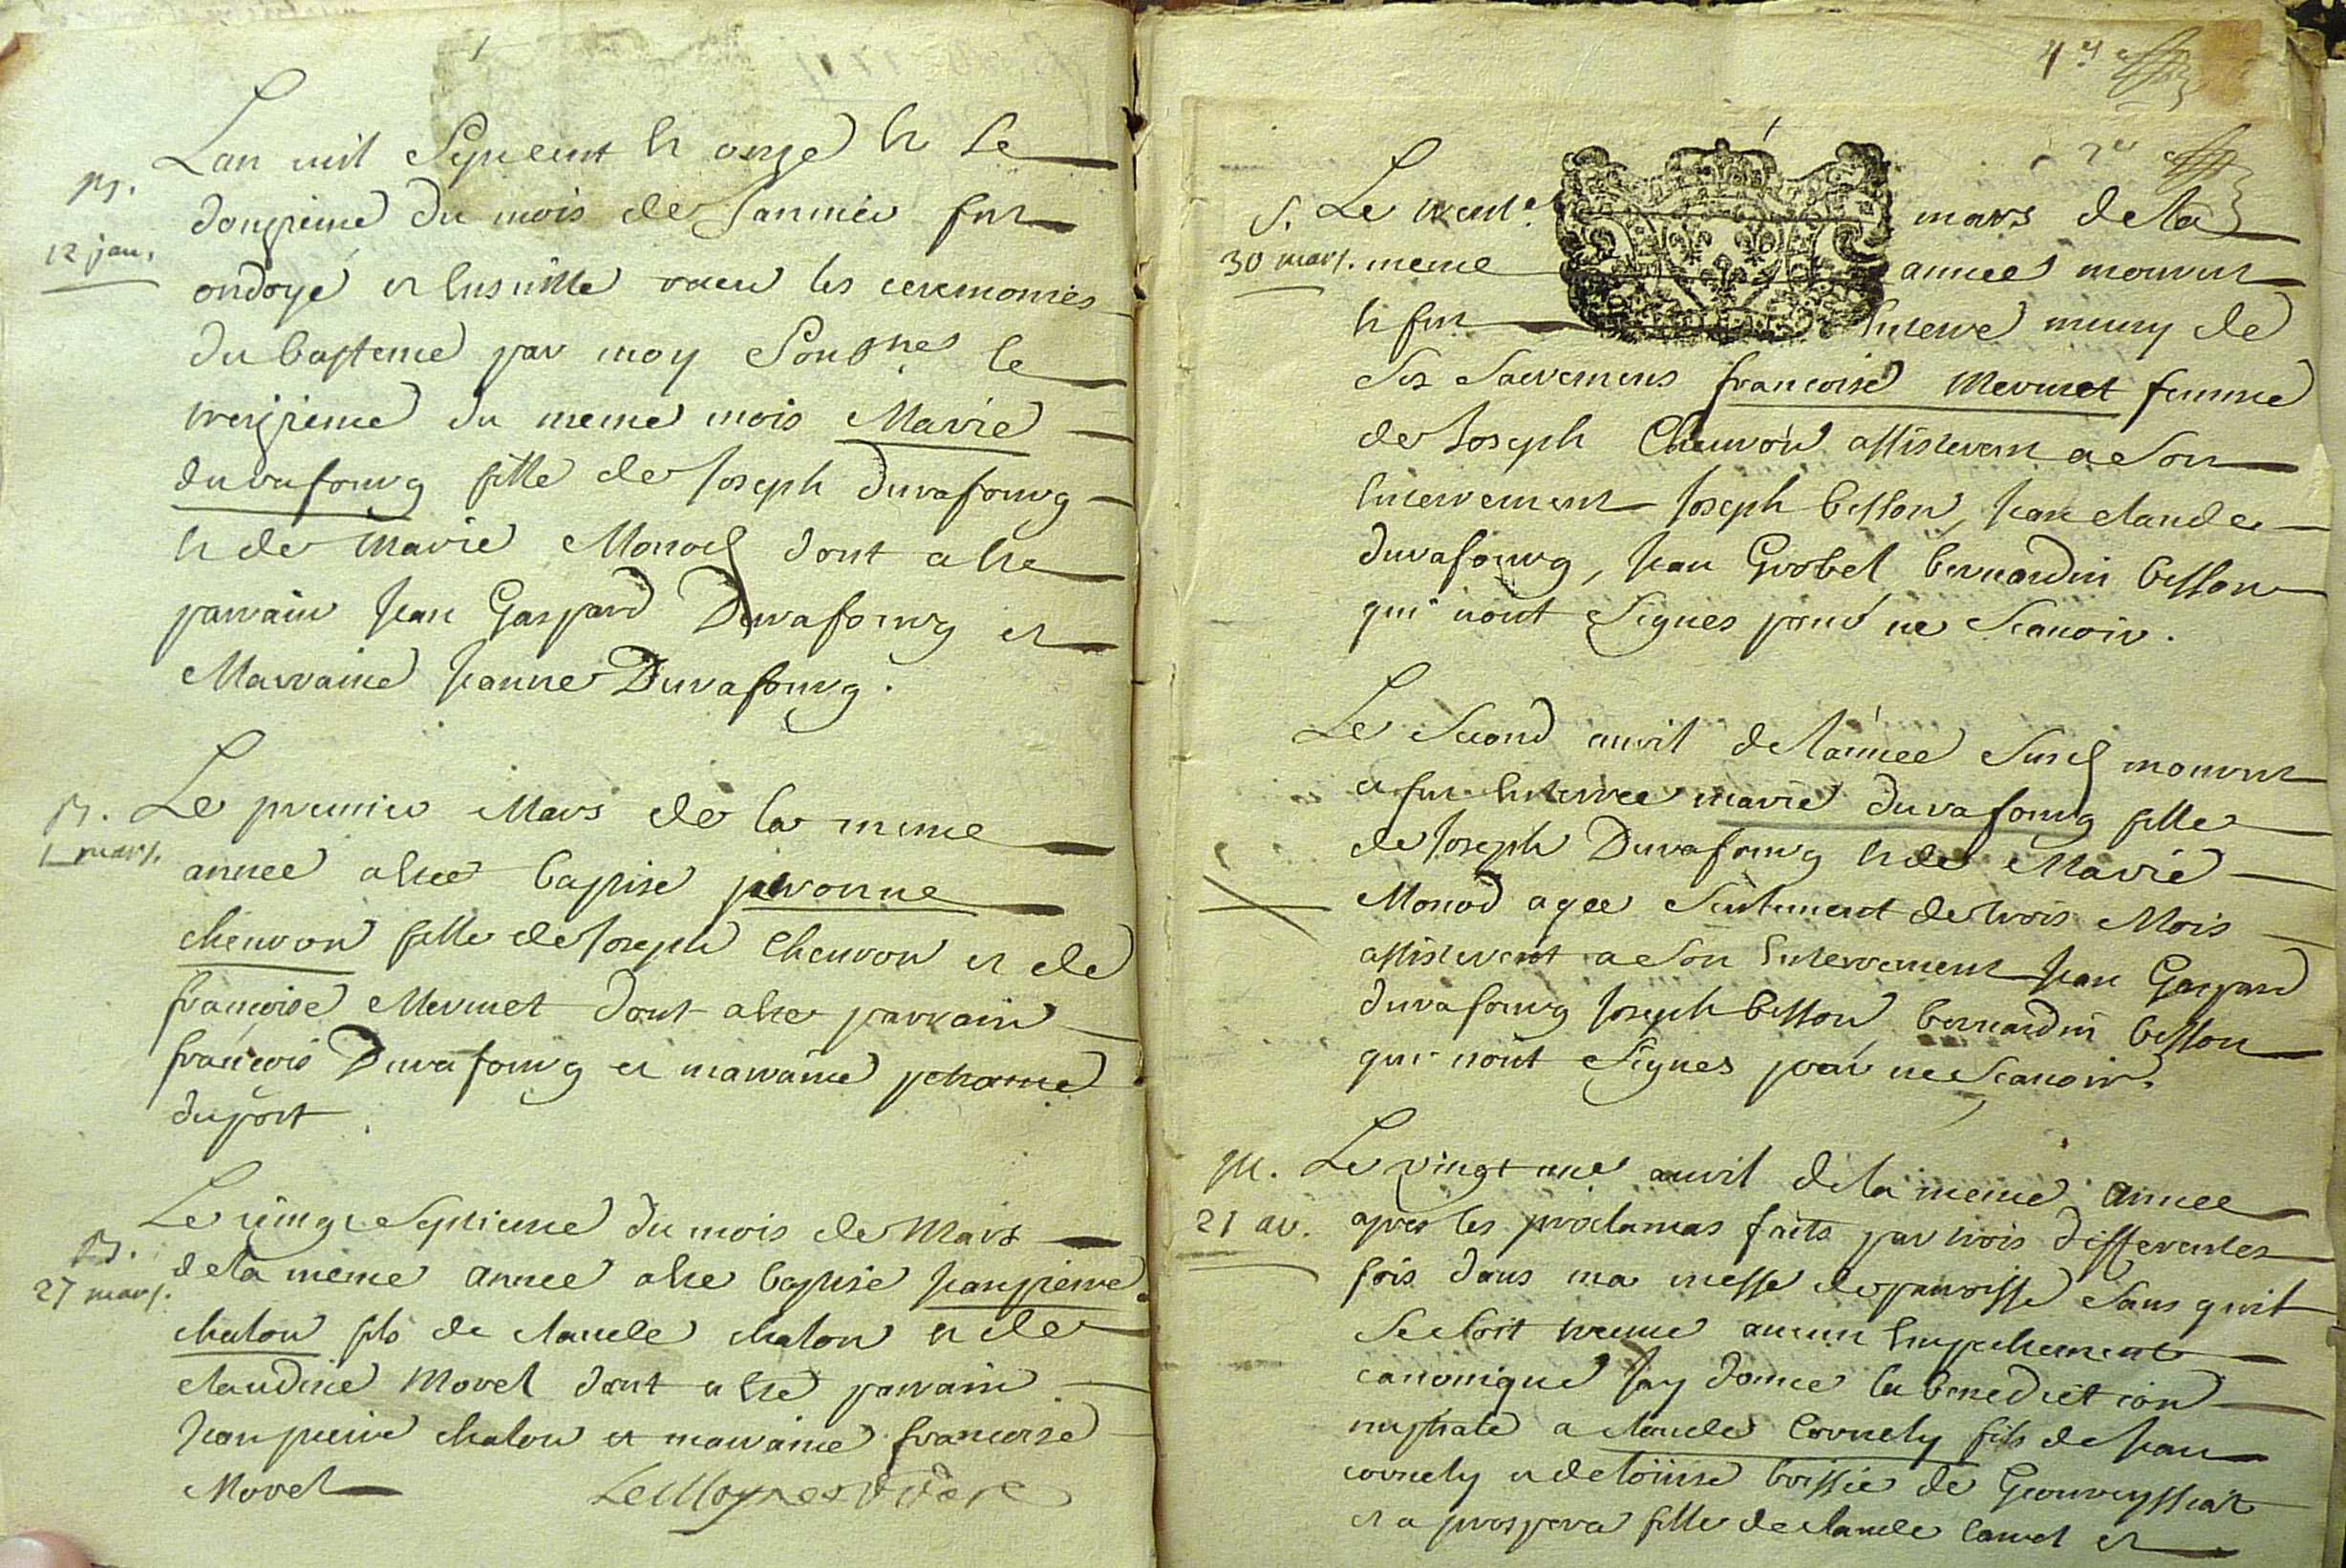 B.
12 jan.
Lan mil Sept cent et onze et le
douzieme du mois de Janvier fut
ondoyé et ensuitte receu les ceremonies
du bapteme par moy Soubnes le
treizieme du meme mois Marie
durafourg fille de Joseph durafourg
et de Marie Monod dont a ete
parrain Jean Gaspard Durafourg et
Marraine Jeanne Durafourg.
B.
1 mars.
Le premier Mars de la meme
annee a ete baptise pevronne
cheuvron fille de Joseph Cheuvron et de
francoise Mermet dont a ete parrain
francois Durafourg et marraine
duport
B.
27 mars.
Le vingt Septieme du mois de Mars
de la meme annee a ete baptise Jeanpierre
chalon fils de claude chalon et de
claudine Morel dont a ete parrain
Jean pierre chalon et marraine francoise
Morel
4e
S.
30 mars.
Le trente mars de la
meme annee mourut
et fut enterre muny de
Ses Sacremens francoise Mermet femme
de Joseph Cheuvron assisterent a Son
enterrement Joseph besson, Jean claude
durafourg, Jean Grobel bernardin besson
qui nont Signes pour ne Scavoir.
Le Second avril de l'annee Susd mourut
et fut enterree marie durafourg fille
de Joseph Durafourg et de Marie
Monod agee Seulement de trois Mois
assisterent a Son enterrement Jean Gaspard
durafourg Joseph besson bernardin besson
qui nont Signes pour ne Scavoir.
M.
21 av.
Le vingt une avril de la meme annee
apres les proclamas faits par trois differentes
fois dans ma messe de parroisse Sans quil
Se Soit treuve aucun empechement
canonique Jay donne la benediction
nuptiale a claude Cornely fils de Jean
cornely et de loüise boissie de
et a prospera fille de claude et